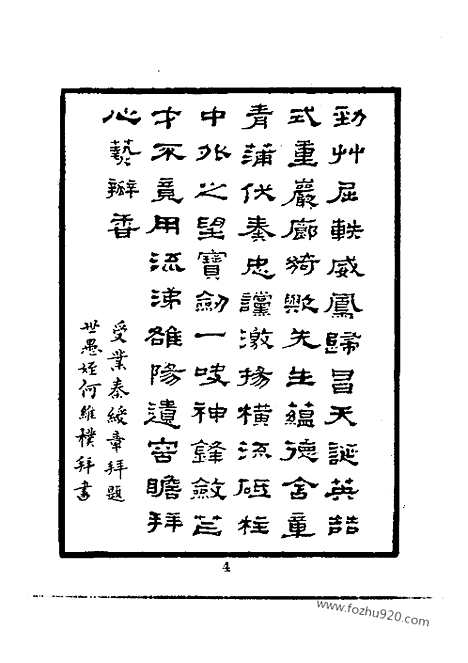 勁艸屈軼威鳳歸昌天誕英喆
式重巖廊猗歟先生蘊德含章
青蒲伏奏忠讜激揚橫流砥柱
中外之望寶劒一吷神鋒斂芒
才不竟用流涕雒陽遺容瞻拜
心爇瓣香
受業秦綬章拜題
世愚姪何維樸拜書
4
www.fozhu920.com